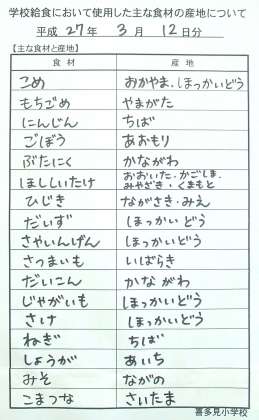 学校給食において使用した主な食材の産地について
平成 27年 3月 12日分
【主な食材と産地】
食材 産地
こめ おかやま、ほっかいどう
もちごめ やまがた
にんじん ちば
ごぼう あおもり
ぶたにく かながわ
ほししいたけ おおいた・かごしま、
みやざき・くまもと
ひじき ながさき・みえ
だいず ほっかいどう
さやいんげん ほっかいどう
さつまいも いばらき
だいこん かながわ
じゃがいも ほっかいどう
さけ ほっかいどう
ねぎ ちば
しょうが あいち
みそ ながの
こまつな さいたま
喜多見小学校